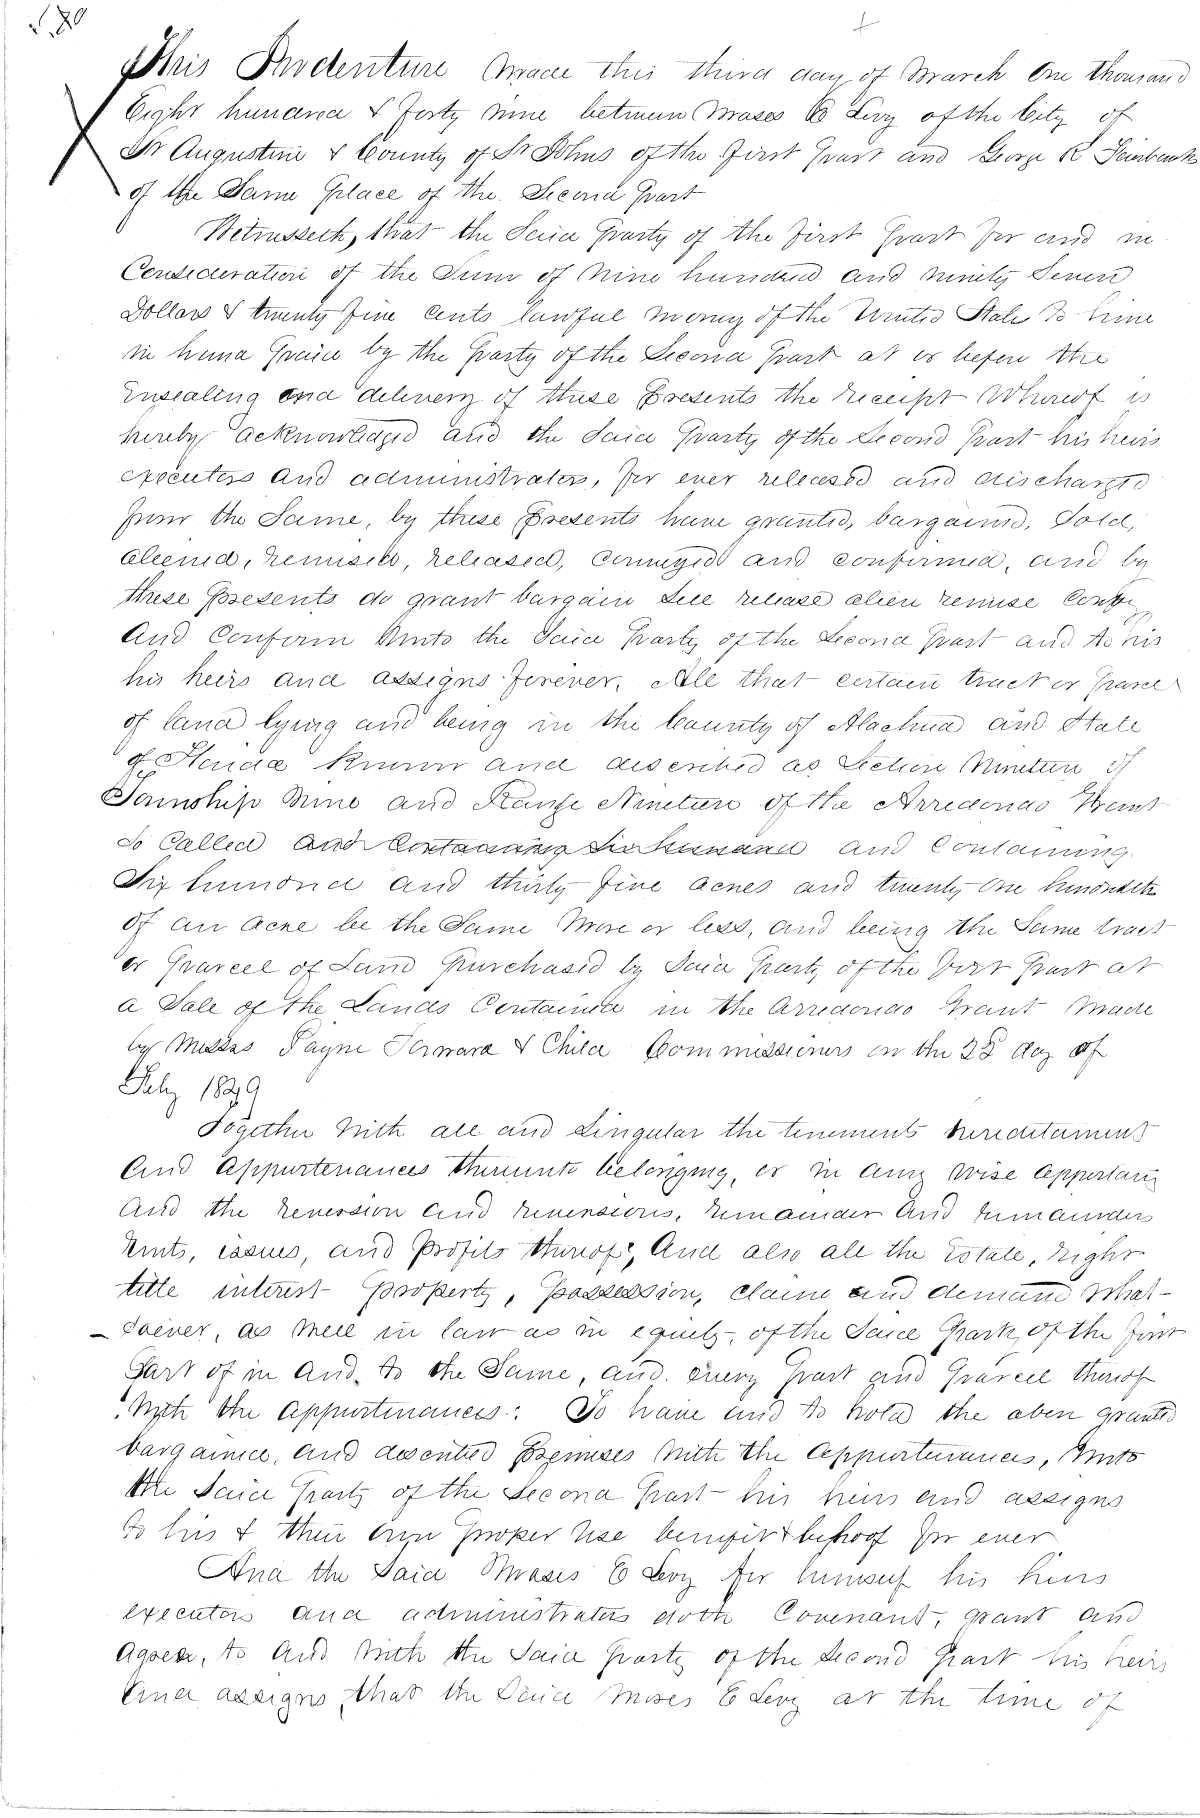 This Indenture made this third day of March One thousand
Eight hundred & forty nine between Moses E Levy of the City of
St Augustine & County of St Johns of the first part and George R Fairbanks
of the Same place of the Second part
Witnesseth, that the Said party of the first part for and in
Consideration of the Sum of Nine hundred and ninety Seven
Dollars & twenty five cents lawful money of the United States to him
in hand paid by the party of the Second part at or before the
Ensealing and delivery of these presents the receipt Whereof is
hereby acknowledged and the Said party of the Second part his heirs
executors and administrators, for ever released and discharged
from the Same, by these presents have granted, bargained, Sold,
aliened, remised, released, conveyed and confirmed, and by
these presents do grant bargain Sell release alien remise Convey
And Confirm Unto the Said party of the Second part and to his
his heirs and assigns forever, All that certain tract or parcel
of land lying and being in the County of Alachua and State
of Florida known and described as Section Nineteen of
Township Nine and Range Nineteen of the Arredondo Grant
So Called and Containing Six hundred and Containing
Six hundred and thirty five acres and twenty one hundredth
of an acre be the Same More or less, and being the Same tract
or parcel of Land purchased by Said party of the first part at
a Sale of the Lands Contained in the Arredondo Grant Made
by Messrs Payne Forward & Child Commissioners on the 22 day of
Feby 1849
Together With all and Singular the tenements hereditaments
And appurtenances thereunto belonging, or in any wise appertain
And the reversion and reversions, remainder and remainders
rents, issues, and profits thereof; And also all the Estate, right
title interest property, possession, claim and demand What-
-Soever, as well in law as in equity, of the Said party of the first
part of in and, to the Same, and. every part and parcel thereof
With the appurtenances: To have and to hold the above granted
bargained, and described premises with the appurtenances, Unto
the Said party of the Second part his heirs and assigns
to his & their own proper Use benefit & behoof for ever
And the Said Moses E Levy for himself his heirs
executors and administrators doth Covenant, grant and
agree, to and with the Said party of the Second part his heirs
And assigns, that the Said Moses E Levy at the time of